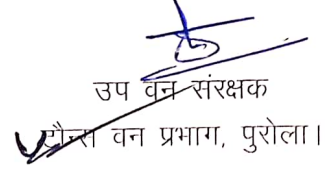 उप वन संरक्षक
टौन्स वन प्रभाग, पुरोला।